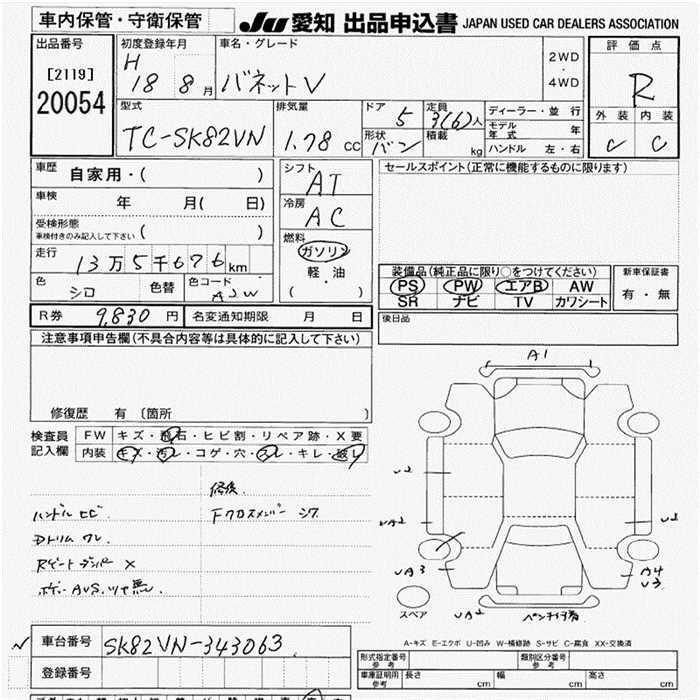 車内保管・守衛保管
JU 愛知 出品申込書 JAPAN USED CAR DEALERS ASSOCIATION
出品番号
[2119]
20054
初度登録年月
H
18 8月
車名・グレード
バネットV
2WD
・
4WD
評価点
R
外装 内装
C C
型式
TC-SK82VN
排気量
1.78 CC
ドア
5
定員
3(6)人
形状
バン
積載
kg
ディーラー・並行
モデル年式 年
ハンドル 左・右
車歴
自家用・( )
車検
年 月( 日)
受検形態
車検付きのみ記入して下さい ( )
走行
13万5千676km
色
シロ
色替
色コード
A2W
シフト
AT
冷房
AC
燃料
ガソリン
軽・油
( ・ )
セールスポイント(正常に機能するものに限ります)
装備品(純正品に限り○をつけてください)
PS PW エアB AW
SR ナビ TV カワシート
新車保証書
有・無
R券 9,830 円
名変通知期限 月 日
後日品
注意事項申告欄(不具合内容等は具体的に記入して下さい)
修復歴 有 〔箇所 〕
検査員
記入欄
FW キズ・飛石・ヒビ割・リペア跡・X要
内装 キズ・汚レ・コゲ・穴・スレ・キレ・破レ
修後.
ハンドル ヒビ.
Fクロスメンバー シワ
Dトリム ワレ.
Rゲートダンパー X
ボデー AUS. ツヤ無.
A1
U2
UA2
UA3
UA2
U2
A4
U3
スペア
A-キズ E-エクボ U-凹み W-補修跡 S-サビ C-腐食 XX-交換済
車台番号
SK82VN-343063
登録番号
形式指定番号
参考
類別区分番号
参考
車庫証明用
参考
長さ cm
幅 cm
高さ cm